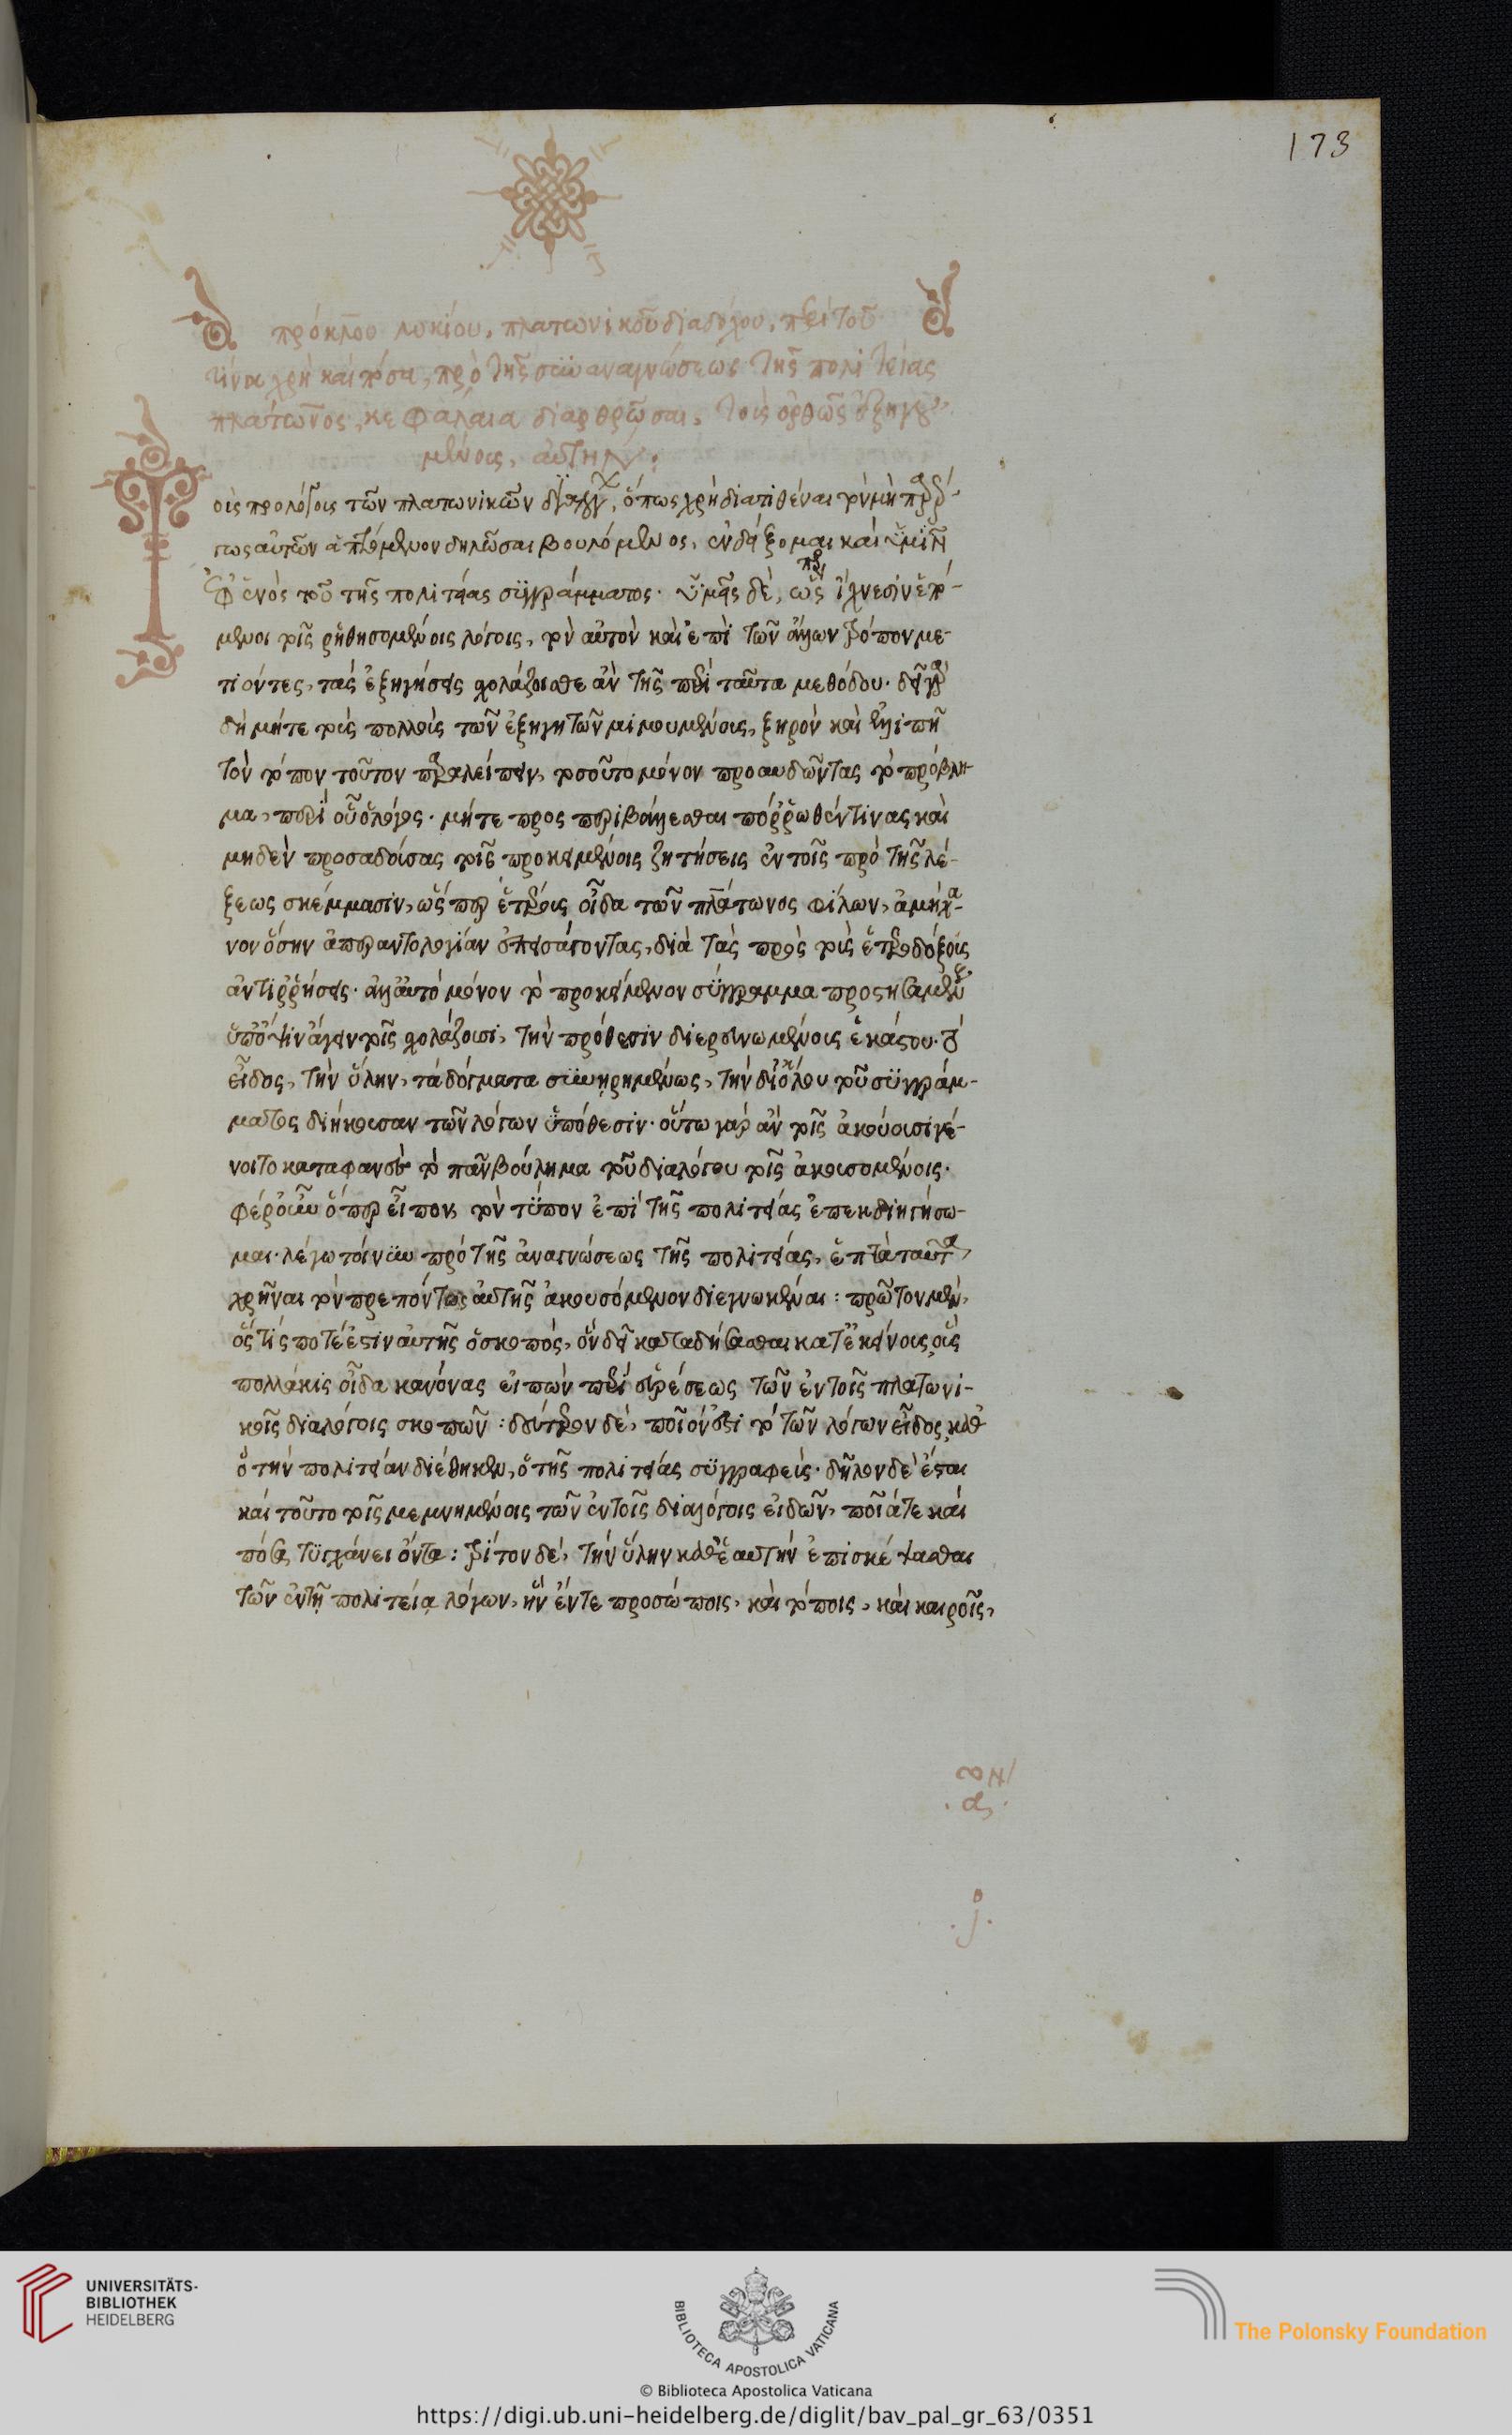 173
πρόκλου λυκίου, πλατωνικοῦ διαδόχου, περὶ τοῦ
τίνα χρὴ καὶ πόσα, πρὸ τῆς συναναγνώσεως τῆς πολιτείας
πλάτωνος, κεφάλαια διαρθρῶσαι, τοὺς ὀρθῶς ἐξηγου
μένους, αὐτήν.
Τοὺς προλόγους τῶν πλατωνικῶν διαλόγων, ὅπως χρὴ διατιθέναι τὸν μὴ παρέρ-
γως αὐτῶν ἁπτόμενον δηλῶσαι βουλόμενος, ἐνδείξομαι καὶ ὑμῖν
ἐφ ἑνὸς τοῦ τῆς πολιτείας συγγράμματος. ὑμᾶς δὲ, ὥσπερ ἴχνεσιν ἑπό-
μενοι τοῖς ῥηθησομένοις λόγοις, τὸν αὐτὸν καὶ ἐπὶ τῶν ἄλλων τρόπον με-
τιόντες, τὰς ἐξηγήσεις στοχάζοισθε ἂν τῆς περὶ ταῦτα μεθόδου. δεῖ γὰρ
δὴ μήτε τοὺς πολλοὺς τῶν ἐξηγητῶν μιμουμένους, ξηρὸν καὶ ἐλλιπῆ
τὸν τόπον τοῦτον παραλείπειν, τοσοῦτο μόνον προαυδῶντας τὸ πρόβλη-
μα, περὶ οὗ ὁ λόγος. μήτε προσπεριβάλλεσθαι πόρρωθέν τινας καὶ
μηδὲν προσᾳδούσας τοῖς προκειμένοις ζητήσεις ἐν τοῖς πρὸ τῆς λέ-
ξεως σκέμμασιν, ὥσπερ ἑτέρους οἶδα τῶν πλάτωνος φίλων, ἀμήχα-
νον ὅσην ἀπεραντολογίαν ἐπεισάγοντας, διὰ τὰς πρὸς τοὺς ἑτεροδόξους
ἀντιρρήσεις. ἀλλ αὐτὸ μόνον τὸ προκείμενον σύγγραμμα προστησαμένους
ὑπ ὄψιν ἄγειν τοῖς σχολάζουσι, τὴν πρόθεσιν διερευνωμένους ἑκάστου. τὸ
εἶδος, τὴν ὕλην, τὰ δόγματα συνῃρημένως, τὴν δι ὅλου τοῦ συγγράμ-
ματος διήκουσαν τῶν λόγων ὑπόθεσιν. οὕτω γὰρ ἂν τοῖς ἀκούουσι γέ-
νοιτο καταφανὲς τὸ πᾶν βούλημα τοῦ διαλόγου τοῖς ἀκουσομένοις.
φέρ οὖν ὅπερ εἶπον, τὸν τύπον ἐπὶ τῆς πολιτείας ἐπεκδιηγήσω-
μαι. λέγω τοίνυν πρὸ τῆς ἀναγνώσεως τῆς πολιτείας, ἑπτὰ ταῦτα
χρῆναι τὸν πρεπόντως αὐτῆς ἀκουσόμενον διεγνωκέναι: πρῶτον μὲν,
ὅς τίς ποτέ ἐστιν αὐτῆς ὁ σκοπὸς, ὃν δεῖ καταδήσασθαι κατ ἐκείνους οὓς
πολλάκις οἶδα κανόνας εἰπὼν περὶ εὑρέσεως τῶν ἐν τοῖς πλατωνι-
κοῖς διαλόγοις σκοπῶν: δεύτερον δὲ, ποῖόν ἐστι τὸ τῶν λόγων εἶδος καθ
ὃ τὴν πολιτείαν διέθηκεν, ὁ τῆς πολιτείας συγγραφεὺς. δῆλον δὲ ἔσται
καὶ τοῦτο τοῖς μεμνημένοις τῶν ἐν τοῖς διαλόγοις εἰδῶν, ποῖά τε καὶ
πόσα τυγχάνει ὄντα: τρίτον δὲ, τὴν ὕλην καθ ἑαυτὴν ἐπισκέψασθαι
τῶν ἐν τῇ πολιτείᾳ λόγων, ἣν ἔν τε προσώποις, καὶ τόποις, καὶ καιροῖς,
UNIVERSITÄTS-
BIBLIOTHEK
HEIDELBERG
BIBLIOTECA APOSTOLICA VATICANA
The Polonsky Foundation
© Biblioteca Apostolica Vaticana
https://digi.ub.uni-heidelberg.de/diglit/bav_pal_gr_63/0351